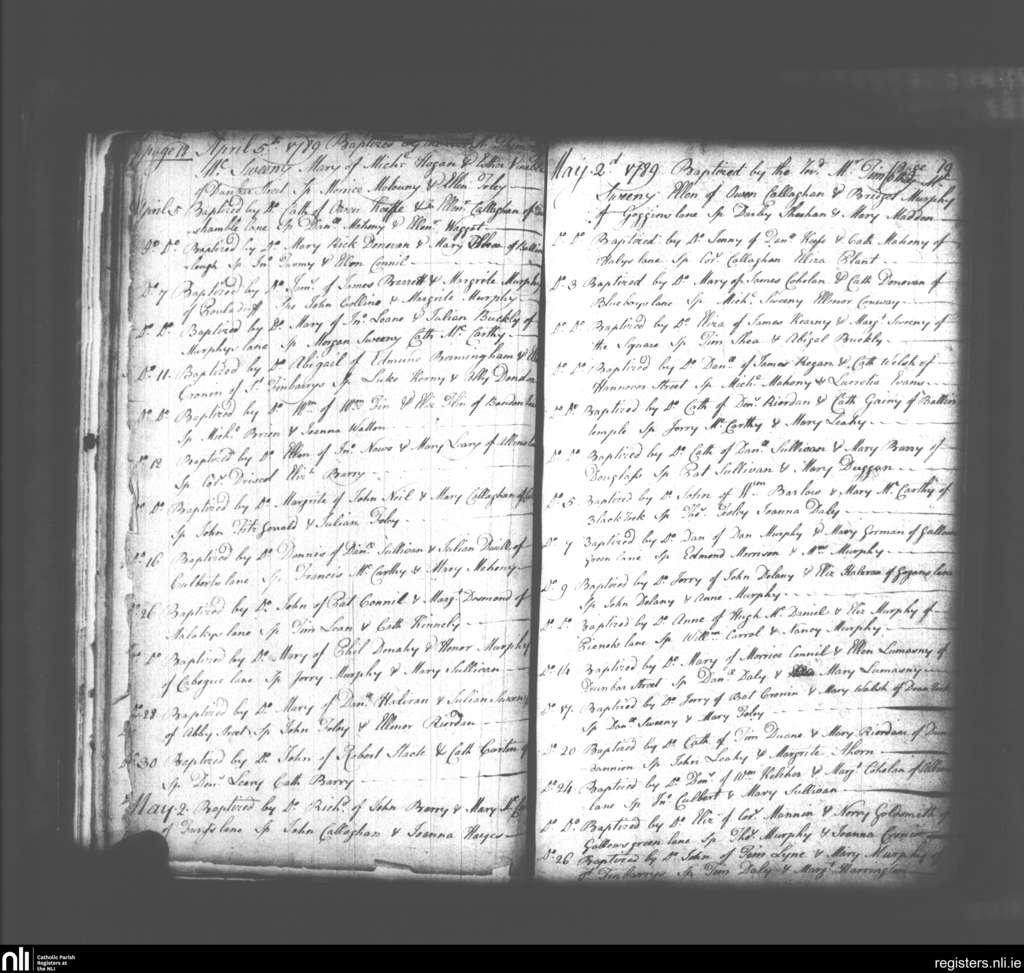 page 18 April 5th 1789 Baptized by the
Mr. Sweeny Mary of Michl. Hogan & Esther
of Dunbar Street Sp Morrice Mohouny & Ellen Foley
April 5 Baptized by Do. Cath of Owen Keeffe & Ellenr. Callaghan of
shamble lane Sp Danl. Mahony & Ellenr. Haggot
9 Do. Baptized by Do. Mary Rick Donovan & Mary of
Sp Jno. Twomy & Ellen Connil
Do. 7 Baptized by Do. of James Barrett & Margrite Murphy
of Sps John Collins & Margrite Murphy
Do. Do. Baptized by Do. Mary of Jno. Leane & Julian Buckly of
Murphys lane Sp Morgan Sweeny Cath Mc. Carthy
Do. 11 Baptized by Do. Abigail of Edmund Bermingham &
Cronin of St. Finbarrys Sp Luke Kerny & Abby
Do. Do. Baptized by Do. Wm. of Wm. & Eliz of Bandon
Sp Michl. Brien & Joanna Walton
Do. 12 Baptized by Do. Ellen of Jno. & Mary Leary of
Sp Cors. Driscol Eliz. Barry
Do. Do. Baptized by Do. Margrite of John Neil & Mary Callaghan of
Sp John Fitz Gerrald & Julian Foley
Do. 16 Baptized by Do. Dennis of Danl. Sullivan & Julian of
Culberts lane Sp Francis Mc. Carthy & Mary Mahony
Do. 26 Baptized by Do. John of Bat Connil & Margt. Desmond of
lane Sp Tim Lean & Cath Kennely
Do. Do. Baptized by Do. Mary of Phil Donahy & Honor Murphy
of lane Sp Jerry Murphy & Mary Sullivan
Do. 28 Baptized by Do. Mary of Danl. Haloran & Julian Sweeny
of Abby Street Sp John Foley & Ellenor Riordan
Do. 30 Baptized by Do. John of Robert Slack & Cath of
Sp Denl. Leary Cath Barry
May 2 Baptized by Do. Richd. of John Barry & Mary
of lane Sp John Callaghan & Joanna Hayes
May 2d 1789 Baptized by the Revd. Mr. Tim Page 19
Sweeny Ellen of Owen Callaghan & Bridget Murphy
of Goggins lane Sp Darby Sheehan & Mary Madden
Do. Do. Baptized by Do. Jenny of Danl. Keefe & Cath Mahony of
Halys lane Sp Cors. Callaghan Eliza Blunt
Do. 3 Baptized by Do. Mary of James Coholan & Cath Donovan of
Blueboys lane Sp Michl. Sweeny Ellenor Conway
Do. Do. Baptized by Do. Eliza of James Kearny & Margt. Sweeny of
the Square Sp Tim Shea & Abigal Buckly
Do. Do. Baptized by Do. Danl. of James Hogan & Cath Walsh of
Hannover Street Sp Michl. Mahony & Lucretia Evans
Do. Do. Baptized by Do. Cath of Denl. Riordan & Cath Guiny of
temple Sp Jerry Mc. Carthy & Mary Leahy
Do. Do. Baptized by Do. Cath of Danl. Sullivan & Mary Barry of
Douglass Sp Bat Sullivan & Mary Duggan
Do. 5 Baptized by Do. John of Wm. Barlow & Mary Mc. Carthy of
Black rock Sp Thos. Foley Joanna Daly
Do. 7 Baptized by Do. Dan of Dan Murphy & Mary Gorman of Gallows
green lane Sp Edmond Morrison & Murphy
Do. 9 Baptized by Do. Jerry of John Delany & Eliz Haloran of Gogans lane
Sp John Delany & Anne Murphy
Do. Do. Baptized by Do. Anne of Hugh Mc. Daniel & Eliz Murphy of
lane Sp Willm. Carrol & Nancy Murphy
Do. 14 Baptized by Do. Mary of Morrice Connil & Ellen Lumasny of
Dunbar Street Sp Danl. Daly & Mary Lumasny
Do. 17. Baptized by Do. Jerry of Bat Cronin & Mary Walsh of
Sp Danl. Sweeny & Mary Foley
Do. 20 Baptized by Do. Cath of Tim Duane & Mary Riordan of
Sp John Leahy & Margrite Ahern
Do. 24 Baptized by Do. Denl. of Wm. Keliher & Margt. Coholan of
lane Sp Jno. Culbert & Mary Sullivan
Do. Do. Baptized by Do. Eliz of Cors. Mannin & Norry Goldsmith of
Gallows green lane Sp Thos. Murphy & Joanna Cronin
Do. 26 Baptized by Do. John of Tim Lyne & Mary Murphy of
St Finbarrys Sp Tim Daly & Margt. Harrington
nli Catholic Parish
Registers at
the NLI
registers.nli.ie